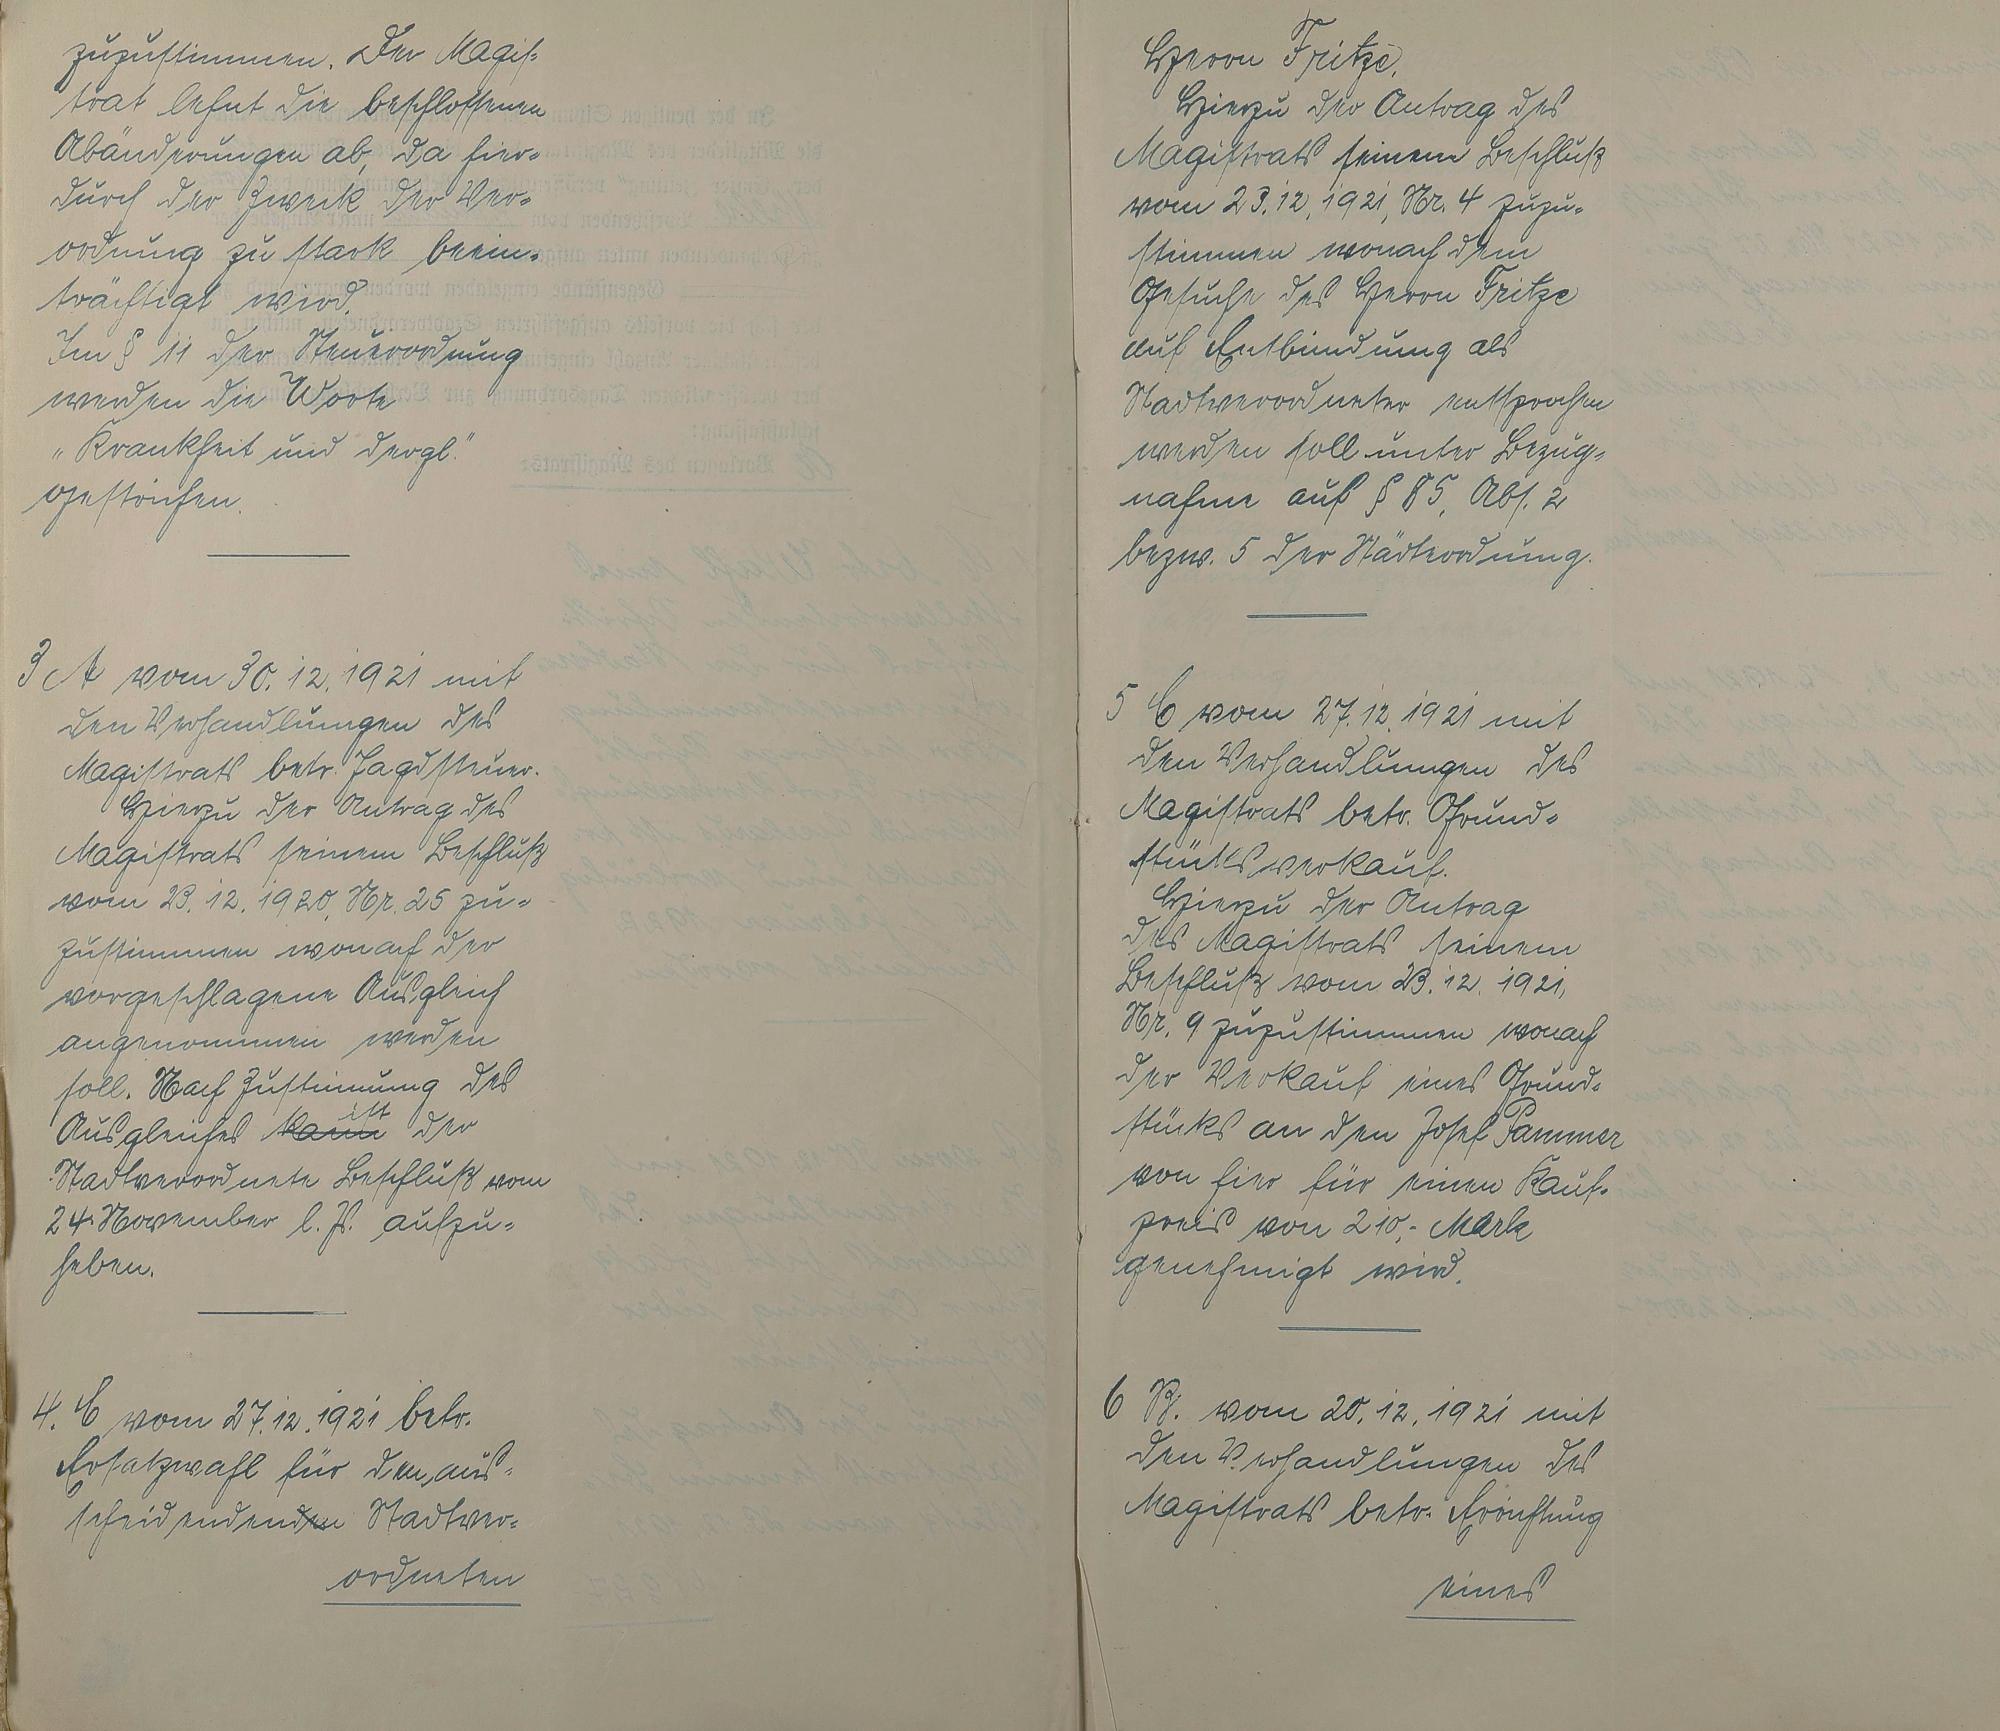 zuzustimmen. Der Magis-
trat lehnt die beschlossenen
Abänderungen ab, da hier-
durch der Zweck der Ver-
ordnung zu stark beein-
trächtigt wird.
Im § 11 der Steuerordnung
werden die Worte
„Krankheit und dergl."
gestrichen.
3 A vom 30.12.1921 mit
den Verhandlungen des
Magistrats betr. Jagdsteuer.
Hierzu der Antrag des
Magistrats seinem Beschluß
vom 23.12.1920, Nr. 25 zu-
zustimmen wonach der
vorgeschlagene Ausgleich
angenommen werden
soll. Nach Zustimmung des
Ausgleiches kann ist der
Stadtverordnete Beschluß vom
24. November l. Js. aufzu-
heben.
4. C vom 27.12.1921 betr.
Ersatzwahl für den aus-
scheidendenden Stadtver-
ordneten
Herrn Fritze.
Hierzu der Antrag des
Magistrats seinem Beschluß
vom 23.12.1921, Nr. 4 zuzu-
stimmen wonach dem
Gesuche des Herrn Fritze
auf Entbindung als
Stadtverordneter entsprochen
werden soll unter Bezug-
nahme auf § 85, Abs. 2
bezw. 5 der Städteordnung.
5 C vom 27.12.1921 mit
den Verhandlungen des
Magistrats betr. Grund-
stücksverkauf.
Hierzu der Antrag
des Magistrats seinem
Beschluß vom 23.12.1921,
Nr. 9 zuzustimmen wonach
der Verkauf eines Grund-
stücks an den Josef Pammer
von hier für einen Kauf-
preis von 210,- Mark
genehmigt wird.
6 B. vom 20.12.1921 mit
den Verhandlungen des
Magistrats betr. Errichtung
eines